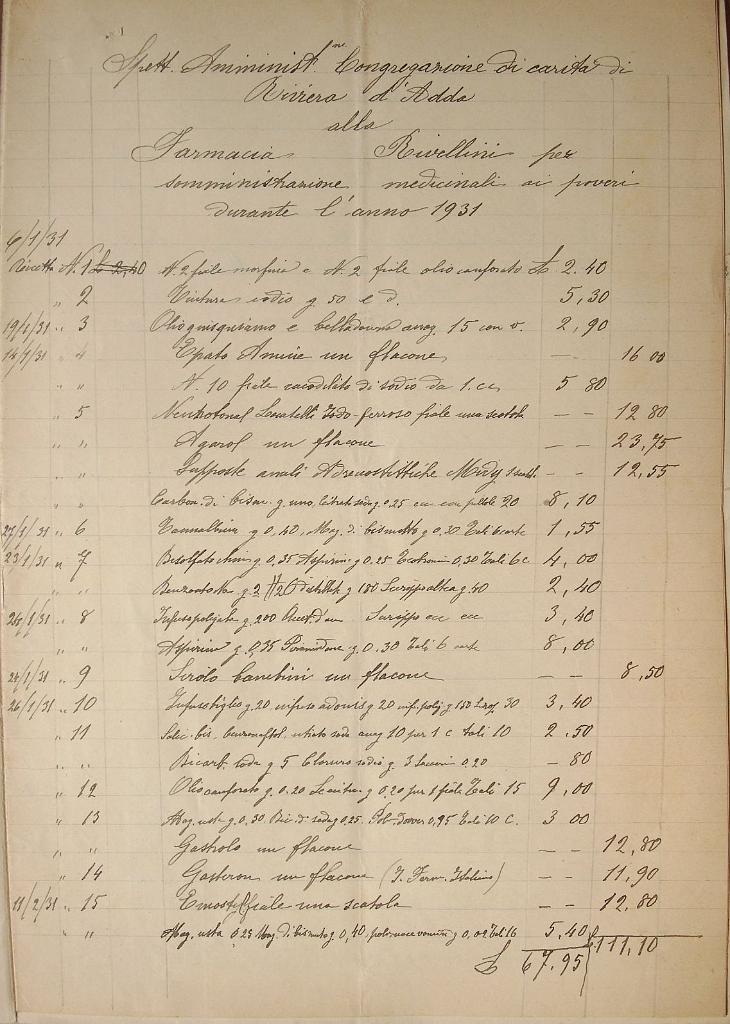 Spett. Amminist.ne Congregazione di carità di
Riviera d'Adda
alla
Farmacia Rivellini per
somministrazione medicinali ai poveri
durante l'anno 1931
6/1/31
Ricetta N. 1 L 2,40 N. 2 fiale morfina e N. 2 fiale olio canforato L 2.40
" 2 Tintura iodio g 50 e d. 5,30
19/1/31 " 3 Olio giusquiamo e belladonna anag. 15 con v. 2,90
14/1/31 " 4 Epato Amine un flacone — — 16 00
" " N. 10 fiale cacodilato di sodio da 1. cc 5 80
" 5 Iodo-ferroso fiale una scatola — — 12 80
" " Agarol un flacone — — 23,75
" " Supposte anali Midy 1 scatt. — — 12,55
" " Carbon. di bism. g. uno, 0.25 20 8,10
27/1/31 " 6 Tannalbina g 0,40, Mag. di bismutto g 0,30 Tali 6 carte 1,55
23/1/31 " 7 Bisolfato chin. g 0,35 Aspirina g 0.25 0,30 Tali 6 c 4,00
" " g. 2 H2O distillata g 180 g. 40 2,40
26/1/31 " 8 g. 200 Sciroppo 3,40
" " Aspirina g. 0,35 Piramidone g 0.30 Tali 6 carte 8,00
24/1/31 " 9 Sirolo bambini un flacone — — 8,50
26/1/31 " 10 Infuso tiglio g. 20 infuso adonis g 20 inf. polig g 150 30 3,40
" 11 Salic. bis. benzonaftol. 10 per 1 c tali 10 2.50
" " Bicarb. soda g 5 Cloruro sodio g. 3 0,20 — 80
" 12 Olio canforato g. 0.20 g. 0,20 per 1 fiale Tali 15 9,00
" 13 Mag. usta g. 0,30 Bic. d. soda g 0,25 Polv. Dower 0,95 Tali 10 C. 3 00
" " Gastrolo un flacone — — 12,80
" 14 Gasteron un flacone (I. Ferm. Italiano) — — 11,90
11/2/31 " 15 fiale una scatola — — 12,80
" Mag. usta 0.25 Mag. di bismuto g 0,40, noce vomica g 0,02 Tali 16 5,40
L 67,95 L. 111,10